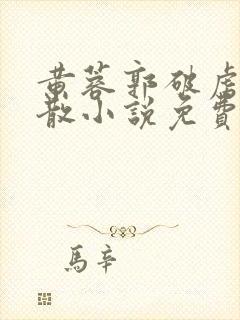 黄蓉郭破虏
散小说免費
馬辛